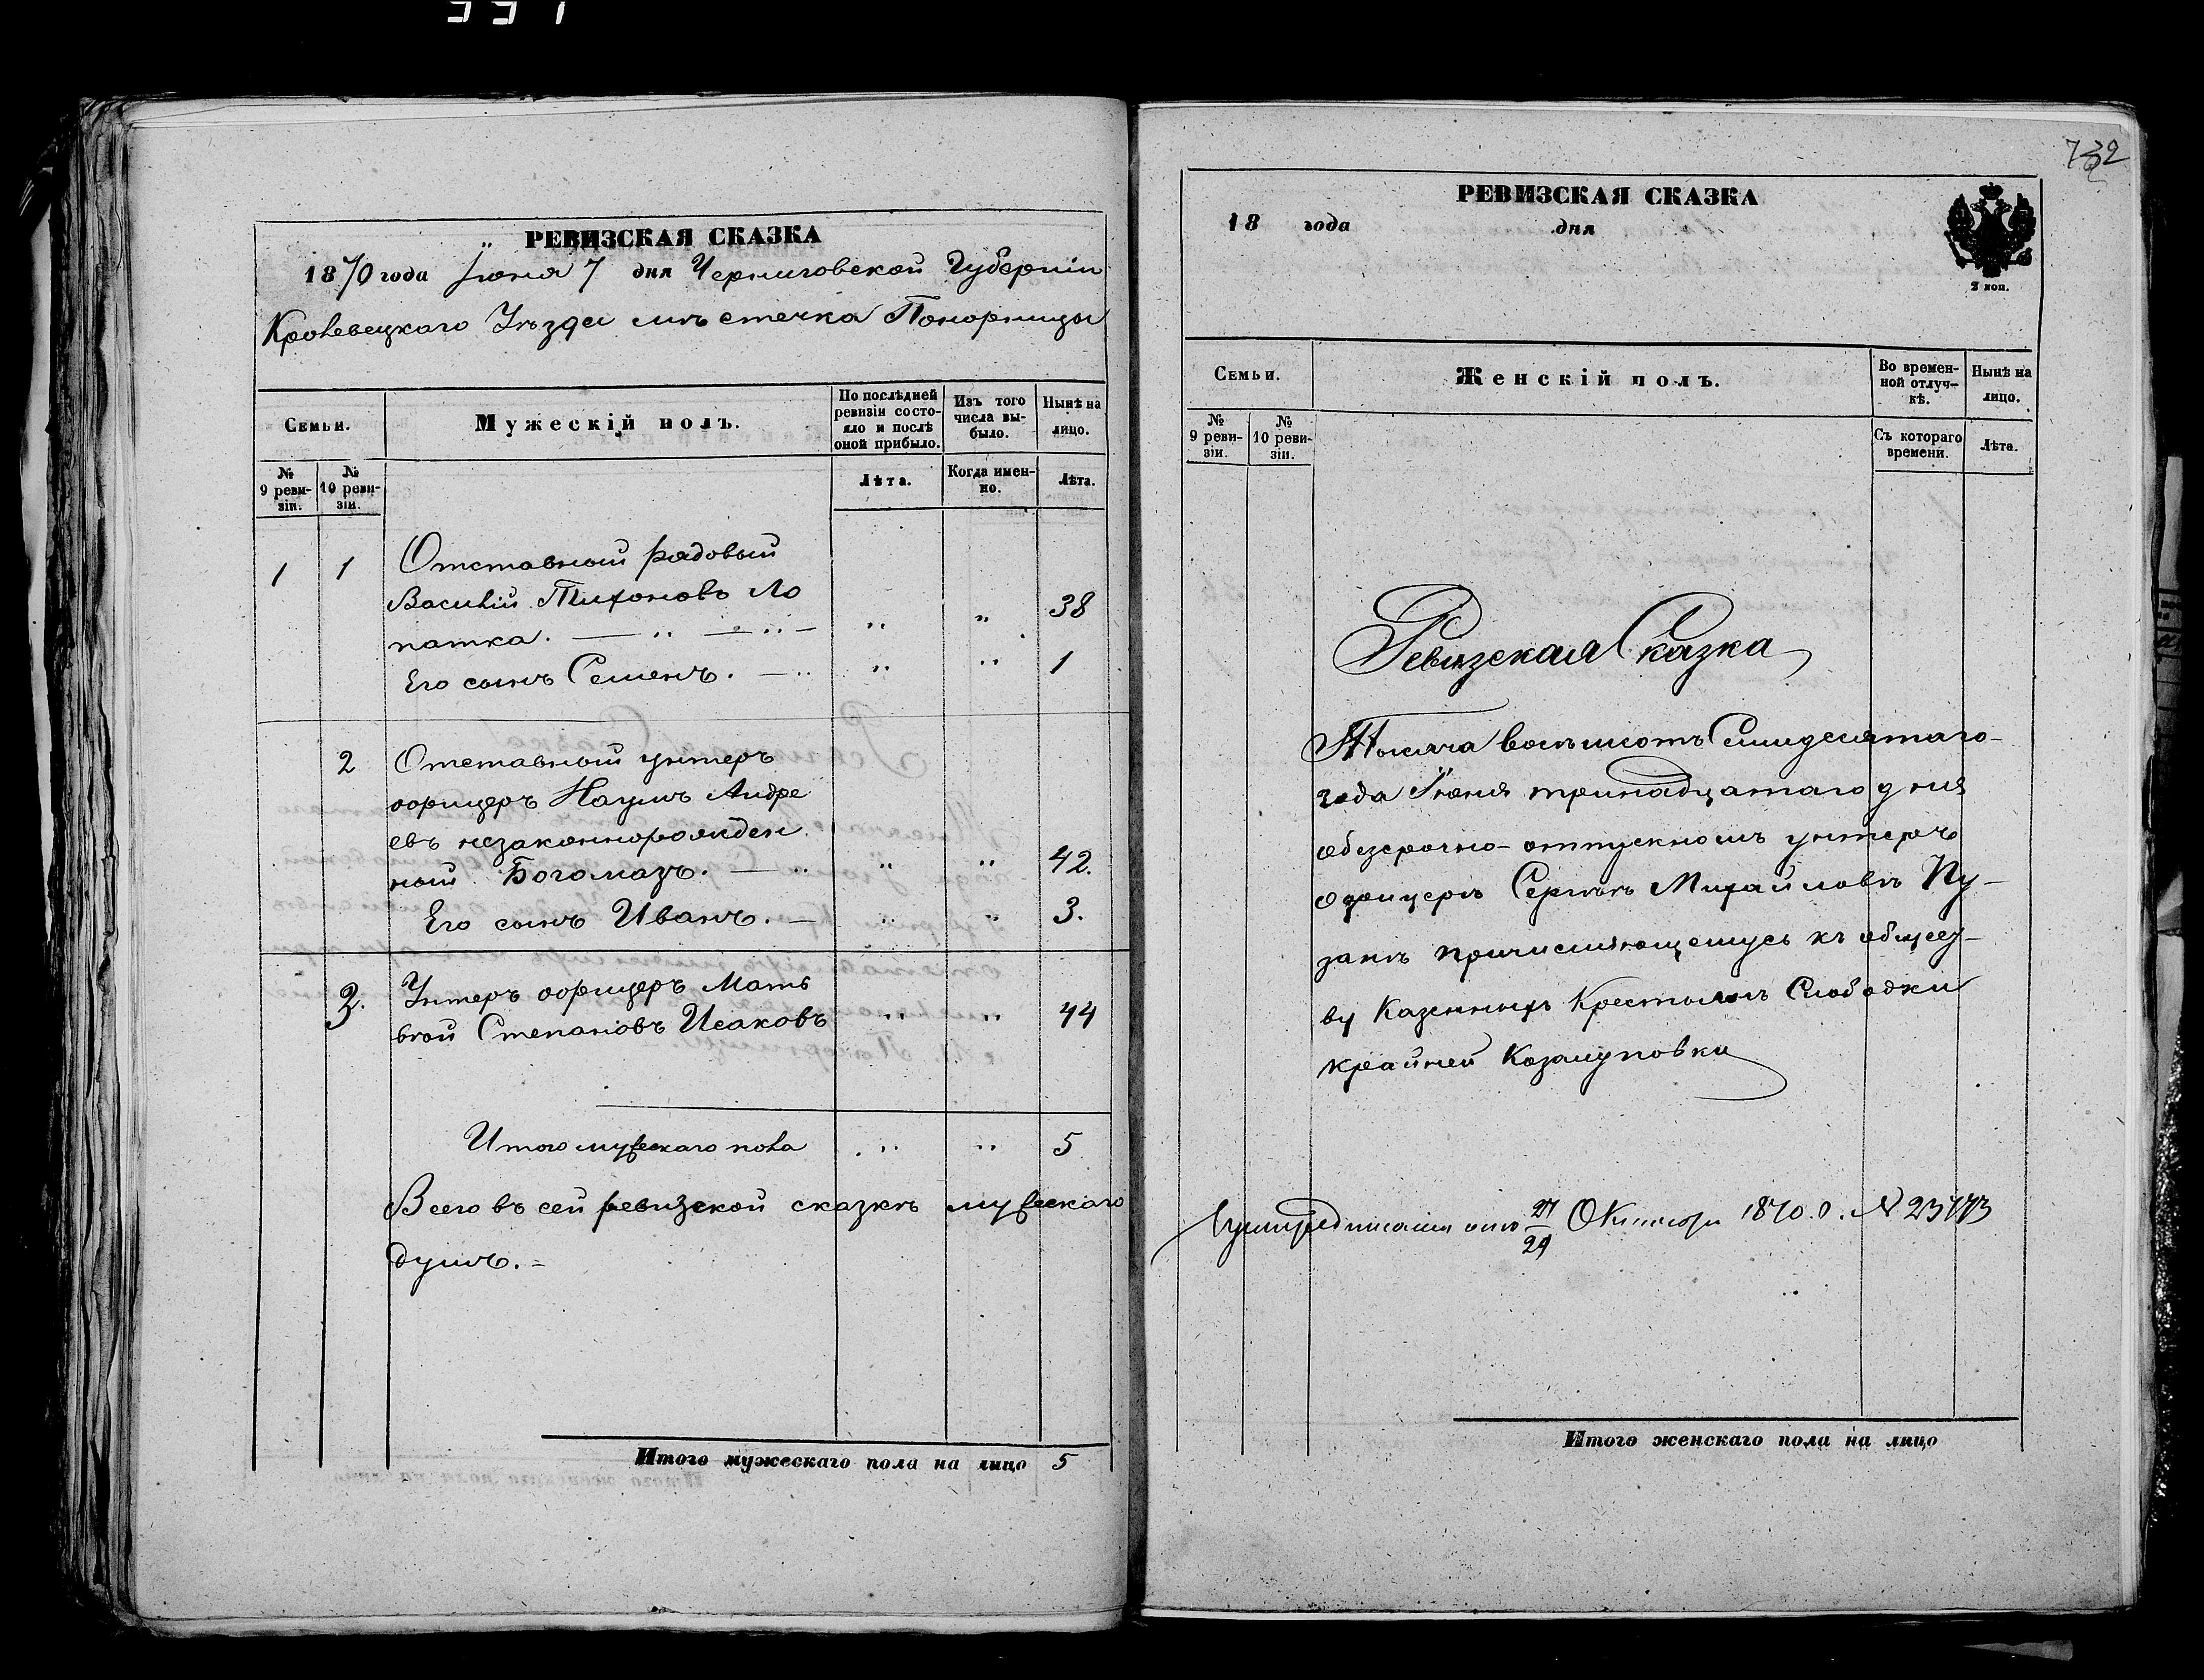 732
РЕВИЗСКАЯ СКАЗКА
1870 года Іюня 7 дня Черниговской Губерніи
Кролевецкаго Уѣзда мѣстечка Понорницы
Семьи.
Мужескій полъ.
По послѣдней ревизіи состояло и послѣ оной прибыло.
Изъ того числа выбыло.
Нынѣ на лицо.
№ 9 ревизіи.
№ 10 ревизіи.
Лѣта.
Когда именно.
Лѣта.
1 1 Отставный рядовый
Василій Тихоновъ Ло „ „ 38
патка. — „ — „ —
Его сынъ Семенъ. — „ „ „ 1
2 Отставный унтеръ
офицеръ Наумъ Андре
евъ незаконнорожден
ный Богомазъ. — „ „ „ 42.
Его сынъ Иванъ. — „ „ 3.
3. Унтеръ офицеръ Матъ
вѣй Степановъ Исаковъ „ „ 44
Итого мужескаго пола „ „ 5
Всего въ сей ревизской сказкѣ мужескаго
душъ. –
Итого мужескаго пола на лицо 5
РЕВИЗСКАЯ СКАЗКА
18 года дня
2 коп.
Семьи.
Женскій полъ.
Во временной отлучкѣ.
Нынѣ на лицо.
№ 9 ревизіи.
№ 10 ревизіи.
Съ котораго времени.
Лѣта.
Ревизская Сказка
Тысяча восѣмсотъ Симдесятаго
года Іюня тринадцатаго дня
обезсрочно-отпускномъ унтеръ
офицерѣ Сергѣѣ Михайловѣ Пу-
закѣ причисляющемусь къ общест-
ву Казенныхъ Крестьянъ Слободки
крайней
отъ 27/29 Октября 1870. г. №
Итого женскаго пола на лицо